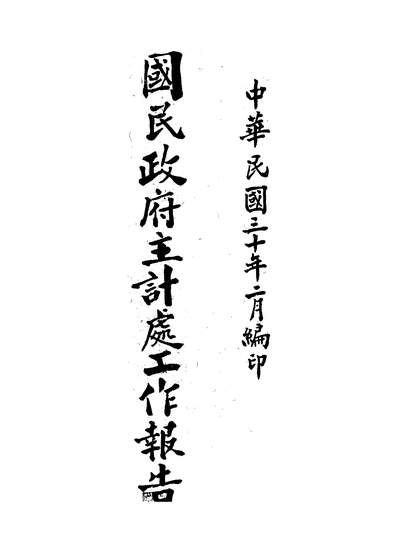 中華民國三十年二月編印
國民政府主計處工作報告